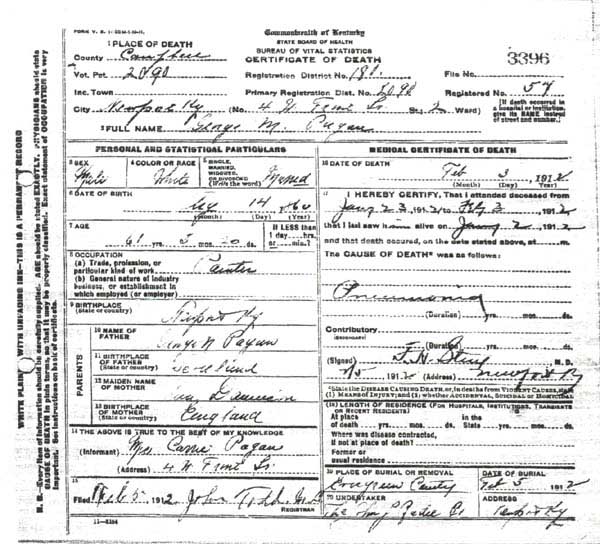 FORM V. S.
Commonwealth of Kentucky
STATE BOARD OF HEALTH
BUREAU OF VITAL STATISTICS
CERTIFICATE OF DEATH
1 PLACE OF DEATH
County Campbell
Vot. Pct. 2090
Inc. Town
City Newport Ky (No. 4 W Front St. 2 Ward)
Registration District No. 181
Primary Registration Dist. No.
File No. 3396
Registered No. 57
[If death occurred in a hospital or institution, give its NAME instead of street and number.]
2 FULL NAME George M. Pagan
PERSONAL AND STATISTICAL PARTICULARS
3 SEX
4 COLOR OR RACE White
5 SINGLE, MARRIED, WIDOWED, OR DIVORCED (Write the word)
6 DATE OF BIRTH
14
(Month) (Day) (Year)
7 AGE
yrs. 5 mos. 20 ds.
If LESS than 1 day, hrs. or min.?
8 OCCUPATION
(a) Trade, profession, or particular kind of work Painter
(b) General nature of industry business, or establishment in which employed (or employer)
9 BIRTHPLACE (State or country) Newport Ky
PARENTS
10 NAME OF FATHER Pagan
11 BIRTHPLACE OF FATHER (State or country)
12 MAIDEN NAME OF MOTHER
13 BIRTHPLACE OF MOTHER (State or country) England
14 THE ABOVE IS TRUE TO THE BEST OF MY KNOWLEDGE
(Informant) Mrs Carrie Pagan
(Address) 4 W Front St.
15
Filed Feb 5 1912 John Todd
REGISTRAR
MEDICAL CERTIFICATE OF DEATH
16 DATE OF DEATH Feb 3, 1912
(Month) (Day) (Year)
17 I HEREBY CERTIFY, That I attended deceased from
Jany 23, 1912 to Feby 3, 1912
that I last saw him alive on 2, 1912
and that death occured, on the date stated above, at m.
The CAUSE OF DEATH* was as follows:
Pneumonia
(Duration) yrs. mos. ds.
Contributory
(Secondary)
(Duration) yrs. mos. ds.
(Signed) M. D.
1912 (Address) Newport Ky
*State the DISEASE CAUSING DEATH, or, in deaths from VIOLENT CAUSES, state (1) MEANS OF INJURY; and (2) whether ACCIDENTAL, SUICIDAL or HOMICIDAL
18 LENGTH OF RESIDENCE (FOR HOSPITALS, INSTITUTIONS, TRANSIENTS OR RECENT RESIDENTS)
At place of death yrs. mos. ds. In the State yrs. mos. ds.
Where was disease contracted, if not at place of death?
Former or usual residence
19 PLACE OF BURIAL OR REMOVAL Evergreen
DATE OF BURIAL Feb 5 1912
20 UNDERTAKER
ADDRESS Newport Ky
WRITE PLAINLY WITH UNFADING INK—THIS IS A PERMANENT RECORD
N. B.—Every item of information should be carefully supplied. AGE should be stated EXACTLY. PHYSICIANS should state CAUSE OF DEATH in plain terms, so that it may be properly classified. Exact statement of OCCUPATION is very important. See instructions on back of certificate.